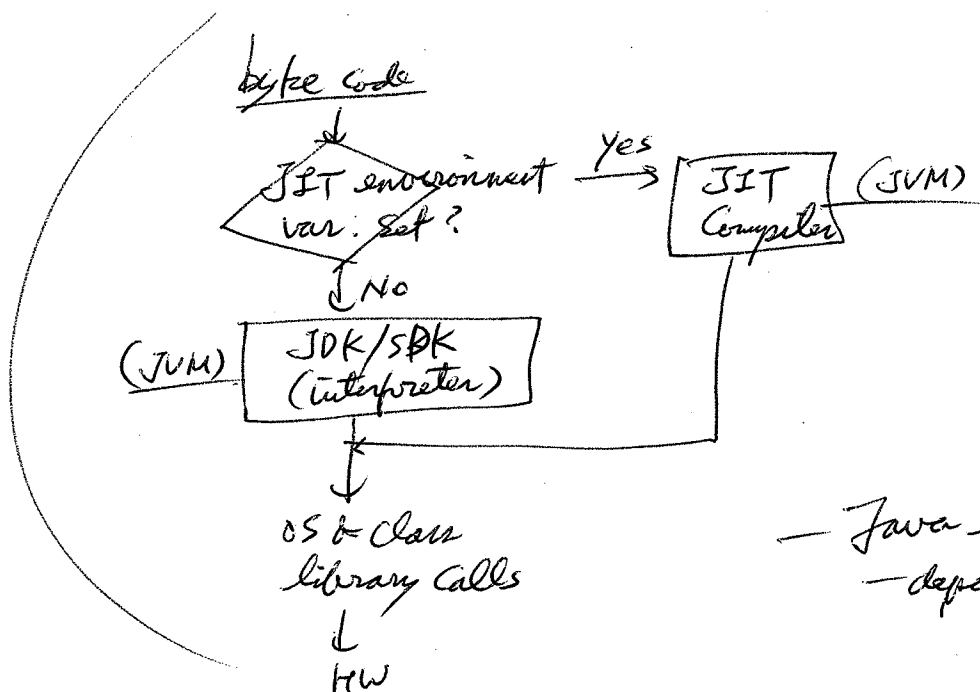 byte code
JIT environment
var. set?
Yes
JIT
Compiler
(JVM)
No
(JVM)
JDK/SDK
(interpreter)
OS & Class
library calls
HW
— Java -
- depe